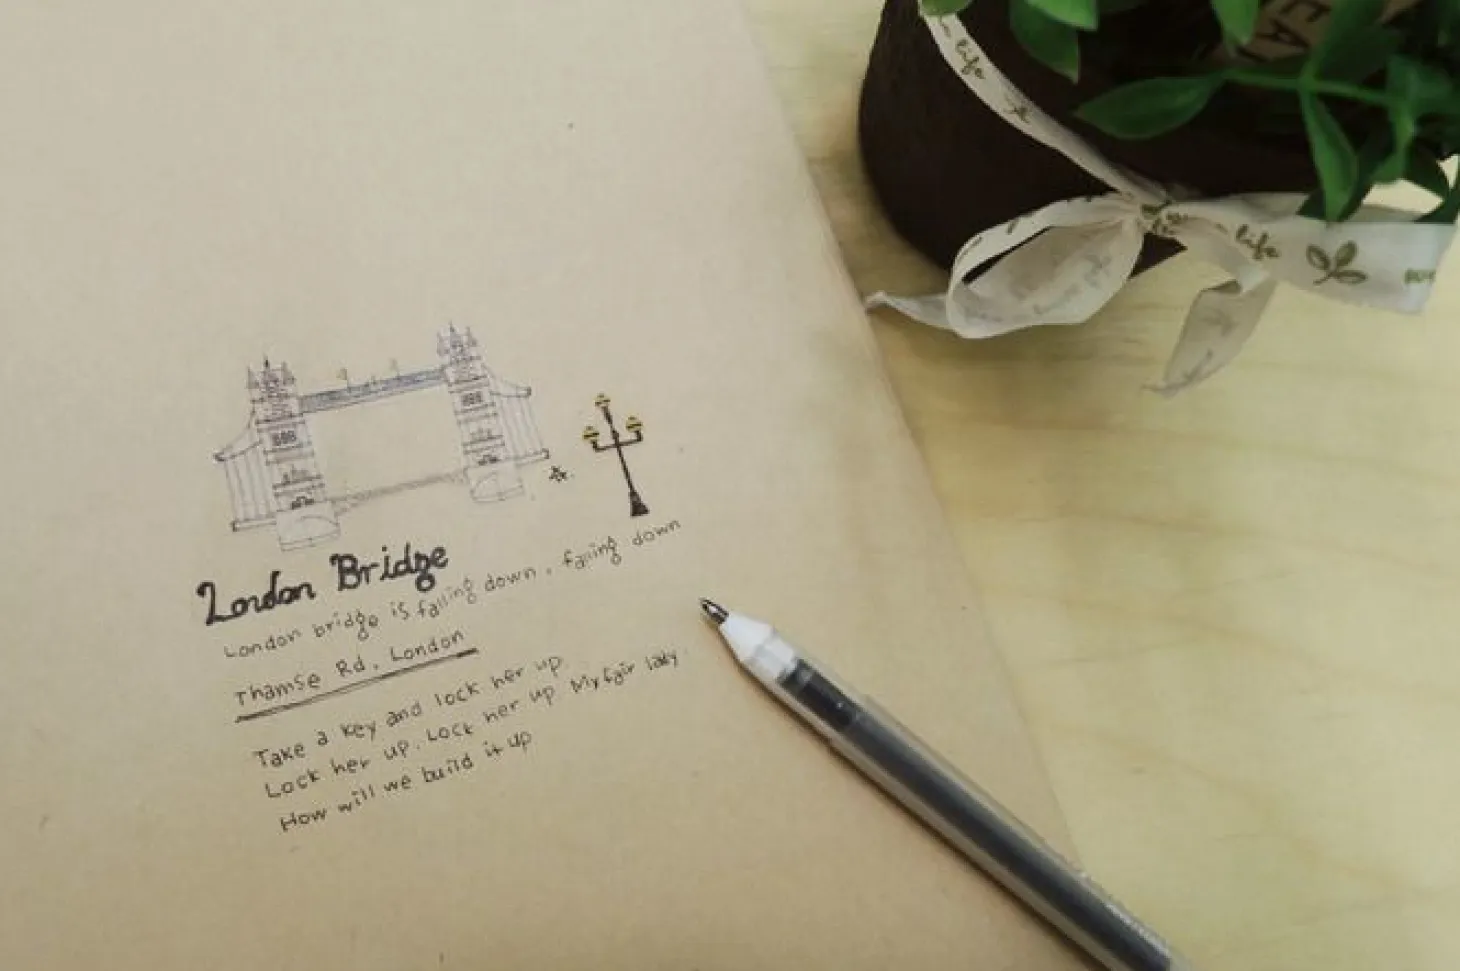 life
life
EA
London Bridge
London bridge is falling down, falling down
Thamse Rd, London
Take a key and lock her up
Lock her up. Lock her up My fair lady
How will we build it up